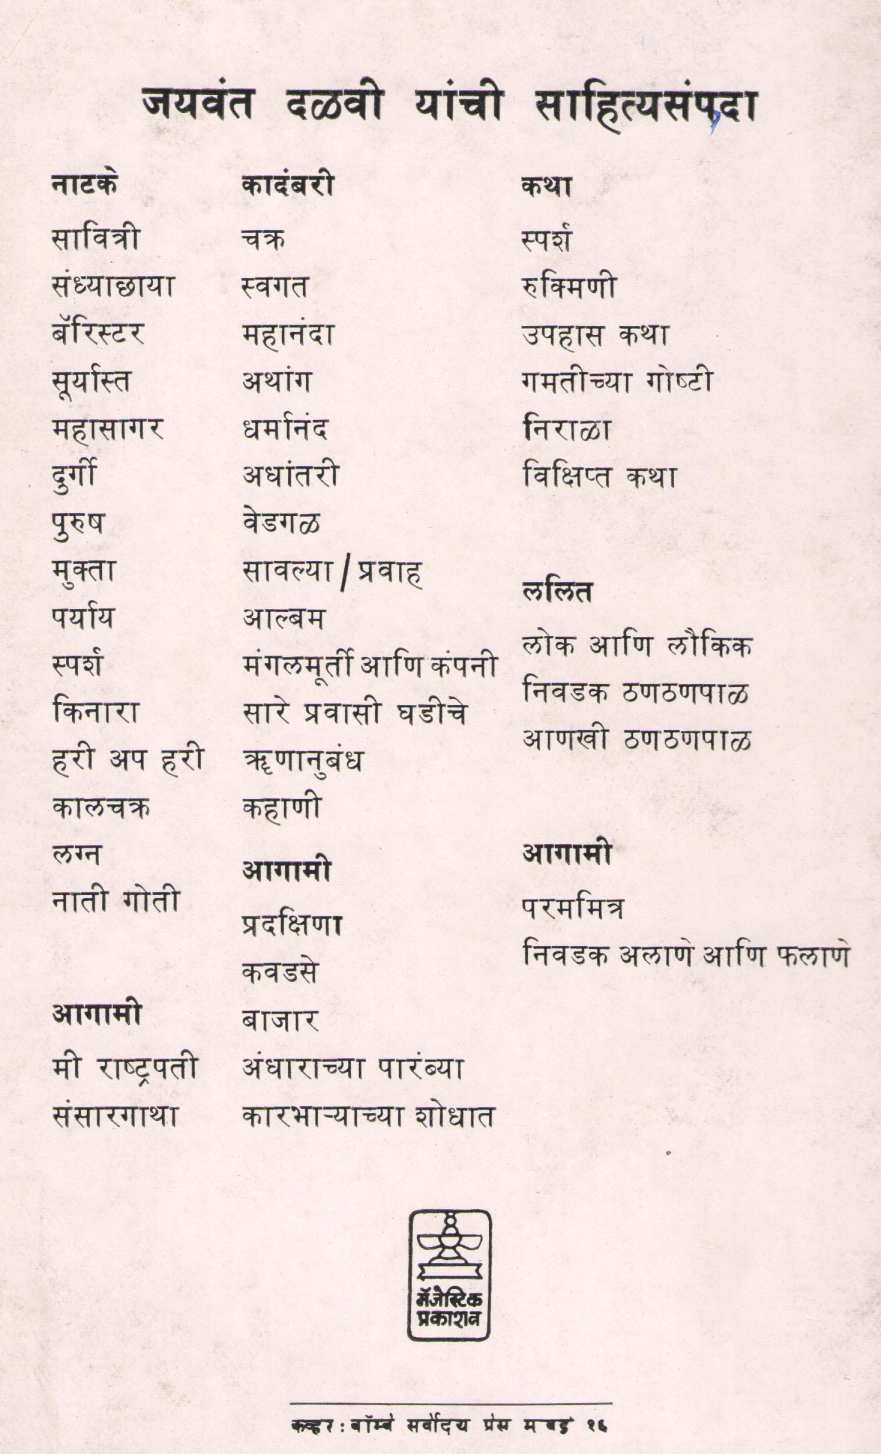 जयवंत दळवी यांची साहित्यसंपदा
नाटके
सावित्री
संध्याछाया
बॅरिस्टर
सूर्यास्त
महासागर
दुर्गी
पुरुष
मुक्ता
पर्याय
स्पर्श
किनारा
हरी अप हरी
कालचक्र
लग्न
नाती गोती
आगामी
मी राष्ट्रपती
संसारगाथा
कादंबरी
चक्र
स्वगत
महानंदा
अथांग
धर्मानंद
अधांतरी
वेडगळ
सावल्या / प्रवाह
आल्बम
मंगलमूर्ती आणि कंपनी
सारे प्रवासी घडीचे
ऋणानुबंध
कहाणी
आगामी
प्रदक्षिणा
कवडसे
बाजार
अंधाराच्या पारंब्या
कारभाऱ्याच्या शोधात
कथा
स्पर्श
रुक्मिणी
उपहास कथा
गमतीच्या गोष्टी
निराळा
विक्षिप्त कथा
ललित
लोक आणि लौकिक
निवडक ठणठणपाळ
आणखी ठणठणपाळ
आगामी
परममित्र
निवडक अलाणे आणि फलाणे
मॅजेस्टिक
प्रकाशन
कव्हर : बॉम्बे सर्वोदय प्रेस मुंबई १६